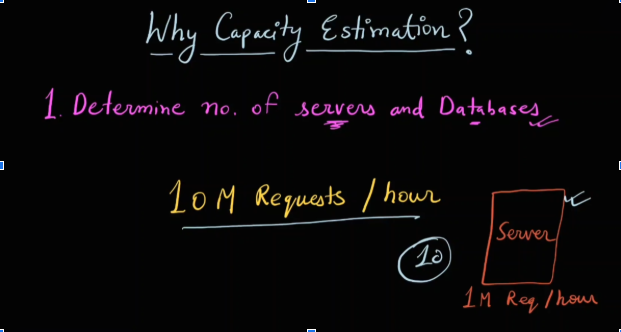 Why Capacity Estimation?
1. Determine no. of servers and Databases
10 M Requests / hour
10
Server
1M Req / hour